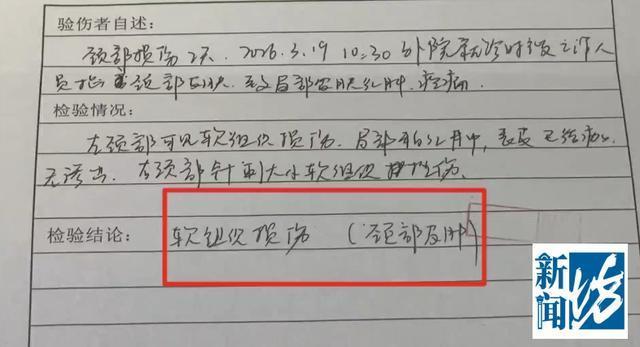 验伤者自述：
颈部损伤2天. 2026.3.19 10:30 外院就诊时被工作人
员 颈部 致局部 红肿. 疼痛.
检验情况：
左颈部可见软组织损伤. 局部 红肿, 表皮已结痂.
无渗出. 左颈部针 大小软组织 伤.
检验结论： 软组织损伤 （颈部皮肤）
新闻坊